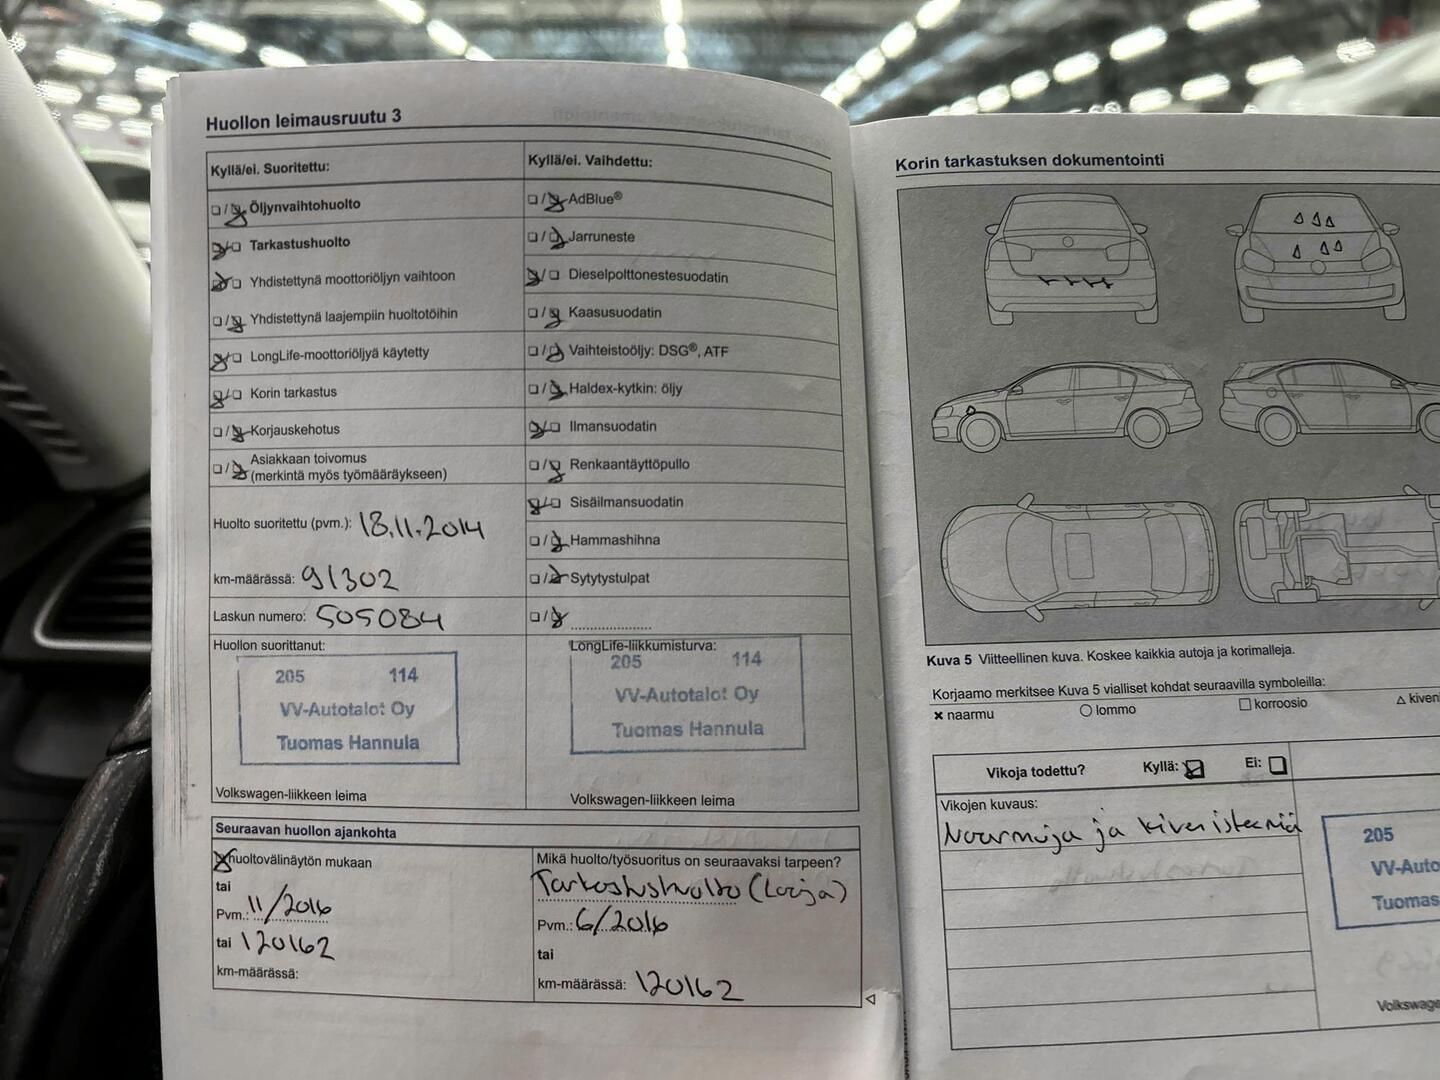 Huollon leimausruutu 3
Kyllä/ei. Suoritettu:
Öljynvaihtohuolto
Tarkastushuolto
Yhdistettynä moottoriöljyn vaihtoon
Yhdistettynä laajempiin huoltotöihin
LongLife-moottoriöljyä käytetty
Korin tarkastus
Korjauskehotus
Asiakkaan toivomus
(merkintä myös työmääräykseen)
Huolto suoritettu (pvm.): 18.11.2014
km-määrässä: 91302
Laskun numero: 505084
Huollon suorittanut:
205 114
VV-Autotalot Oy
Tuomas Hannula
Volkswagen-liikkeen leima
Kyllä/ei. Vaihdettu:
AdBlue®
Jarruneste
Dieselpolttonestesuodatin
Kaasusuodatin
Vaihteistoöljy: DSG®, ATF
Haldex-kytkin: öljy
Ilmansuodatin
Renkaantäyttöpullo
Sisäilmansuodatin
Hammashihna
Sytytystulpat
LongLife-liikkumisturva:
205 114
VV-Autotalot Oy
Tuomas Hannula
Volkswagen-liikkeen leima
Seuraavan huollon ajankohta
huoltovälinäytön mukaan
tai
Pvm.: 11/2016
tai 120162
km-määrässä:
Mikä huolto/työsuoritus on seuraavaksi tarpeen?
Tarkastushuolto (Laaja)
Pvm.: 6/2016
tai
km-määrässä: 120162
Korin tarkastuksen dokumentointi
Kuva 5 Viitteellinen kuva. Koskee kaikkia autoja ja korimalleja.
Korjaamo merkitsee Kuva 5 vialliset kohdat seuraavilla symboleilla:
× naarmu ○ lommo □ korroosio △ kiveni
Vikoja todettu? Kyllä: Ei:
Vikojen kuvaus:
Naarmuja ja kiven iskemiä
205
VV-Auto
Tuomas
Volkswage